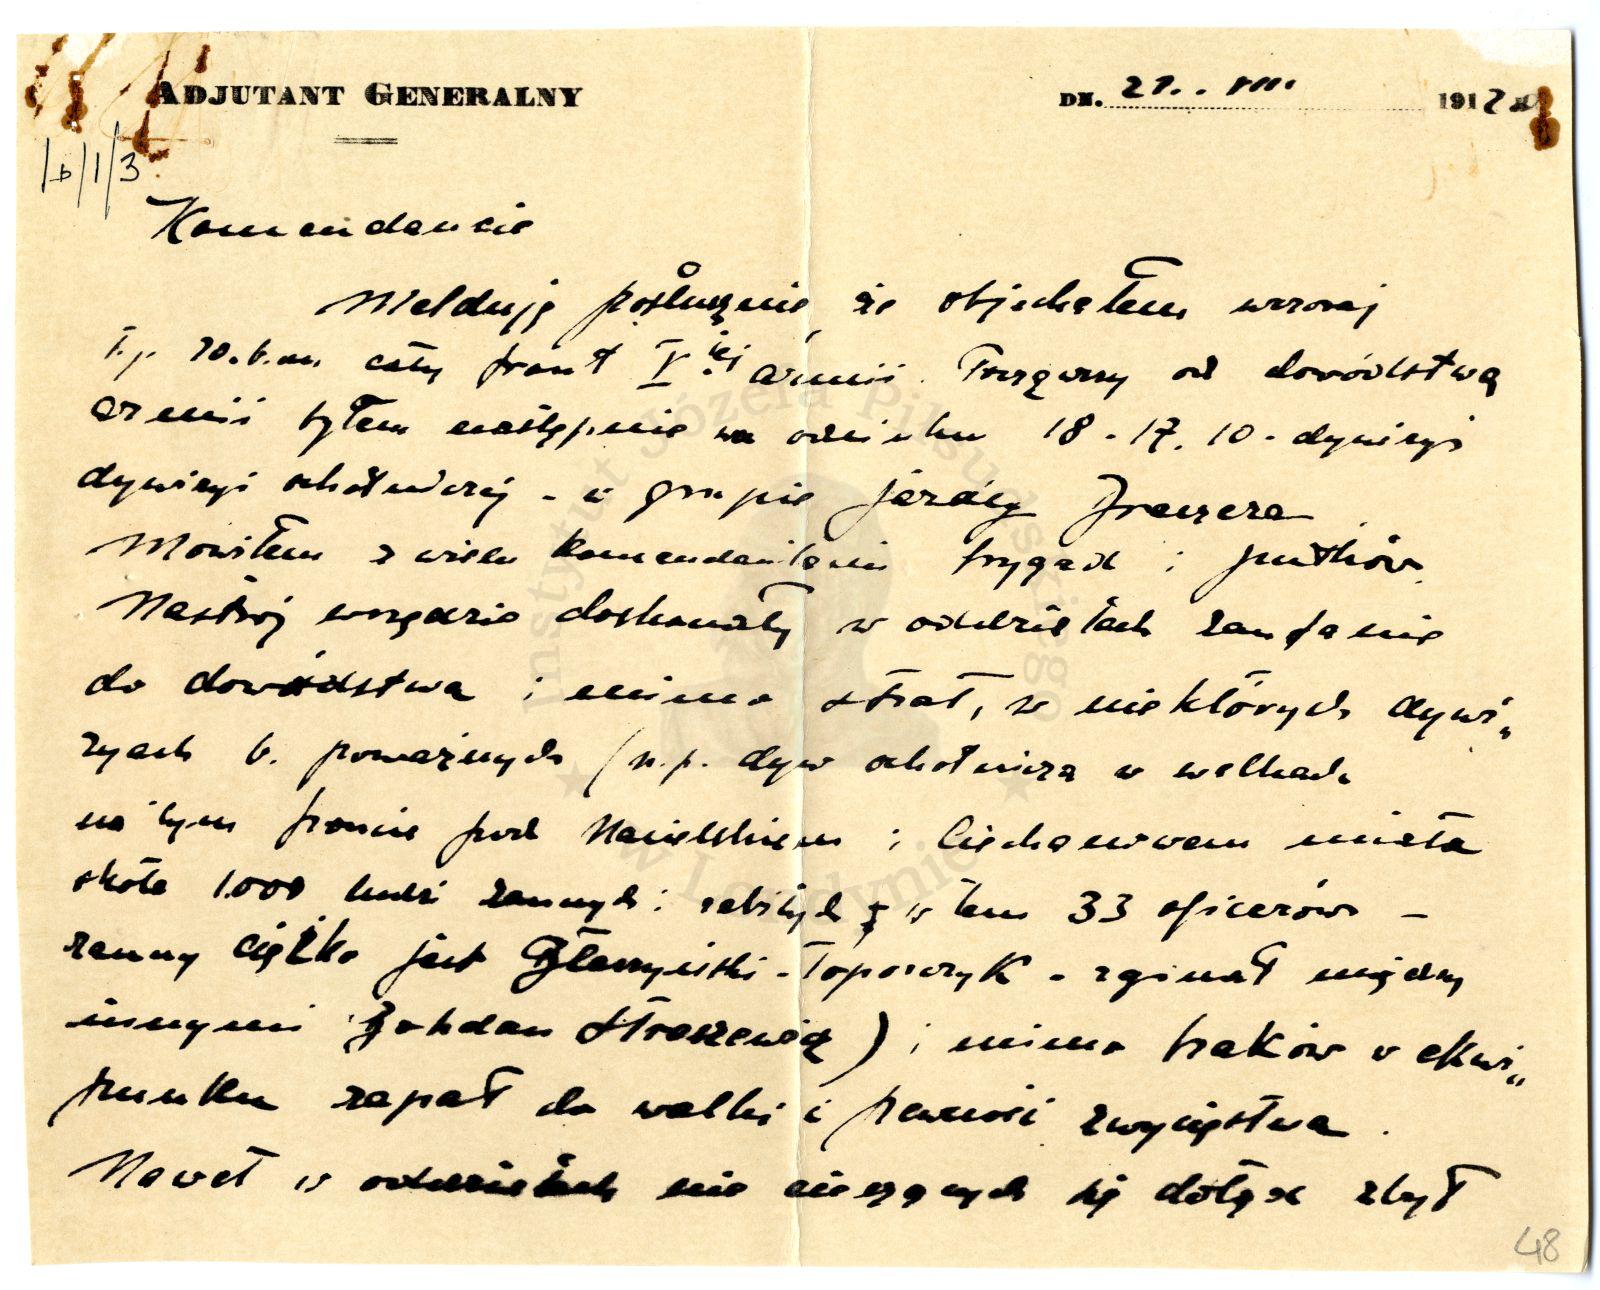 ADJUTANT GENERALNY
DN. 21.. VIII. 1912
/b/1/3
Komendancie
Melduję posłusznie, że objechałem wczoraj
t.j. 20.b.m cały front V iej armii. Począwszy od dowództwa
armii byłem następnie na odcinku 18 - 17. 10 - dywizyi
dywizyi ochotniczej - i grupie jazdy
Mówiłem z wielu komendantami brygad i pułków.
Nastrój wszędzie doskonały w oddziałach zaufanie
do dowództwa i mimo strat, w niektórych dywi„
zyach b. poważnych (n.p. dyw ochotnicza w walkach
na tym froncie pod Nasielskiem i Ciechanowem miała
około 1.000 ludzi rannych i zabitych w tem 33 oficerów -
ranny ciężko jest - Toporczyk - zginął między
innymi Bohdan Straszewicz) i mimo braków w ekwi„
punku zapał do walki i pewność zwycięstwa.
Nawet w oddziałach nie cieszących się dotąd zbyt
48
Instytut Józefa Piłsudskiego
w Londynie